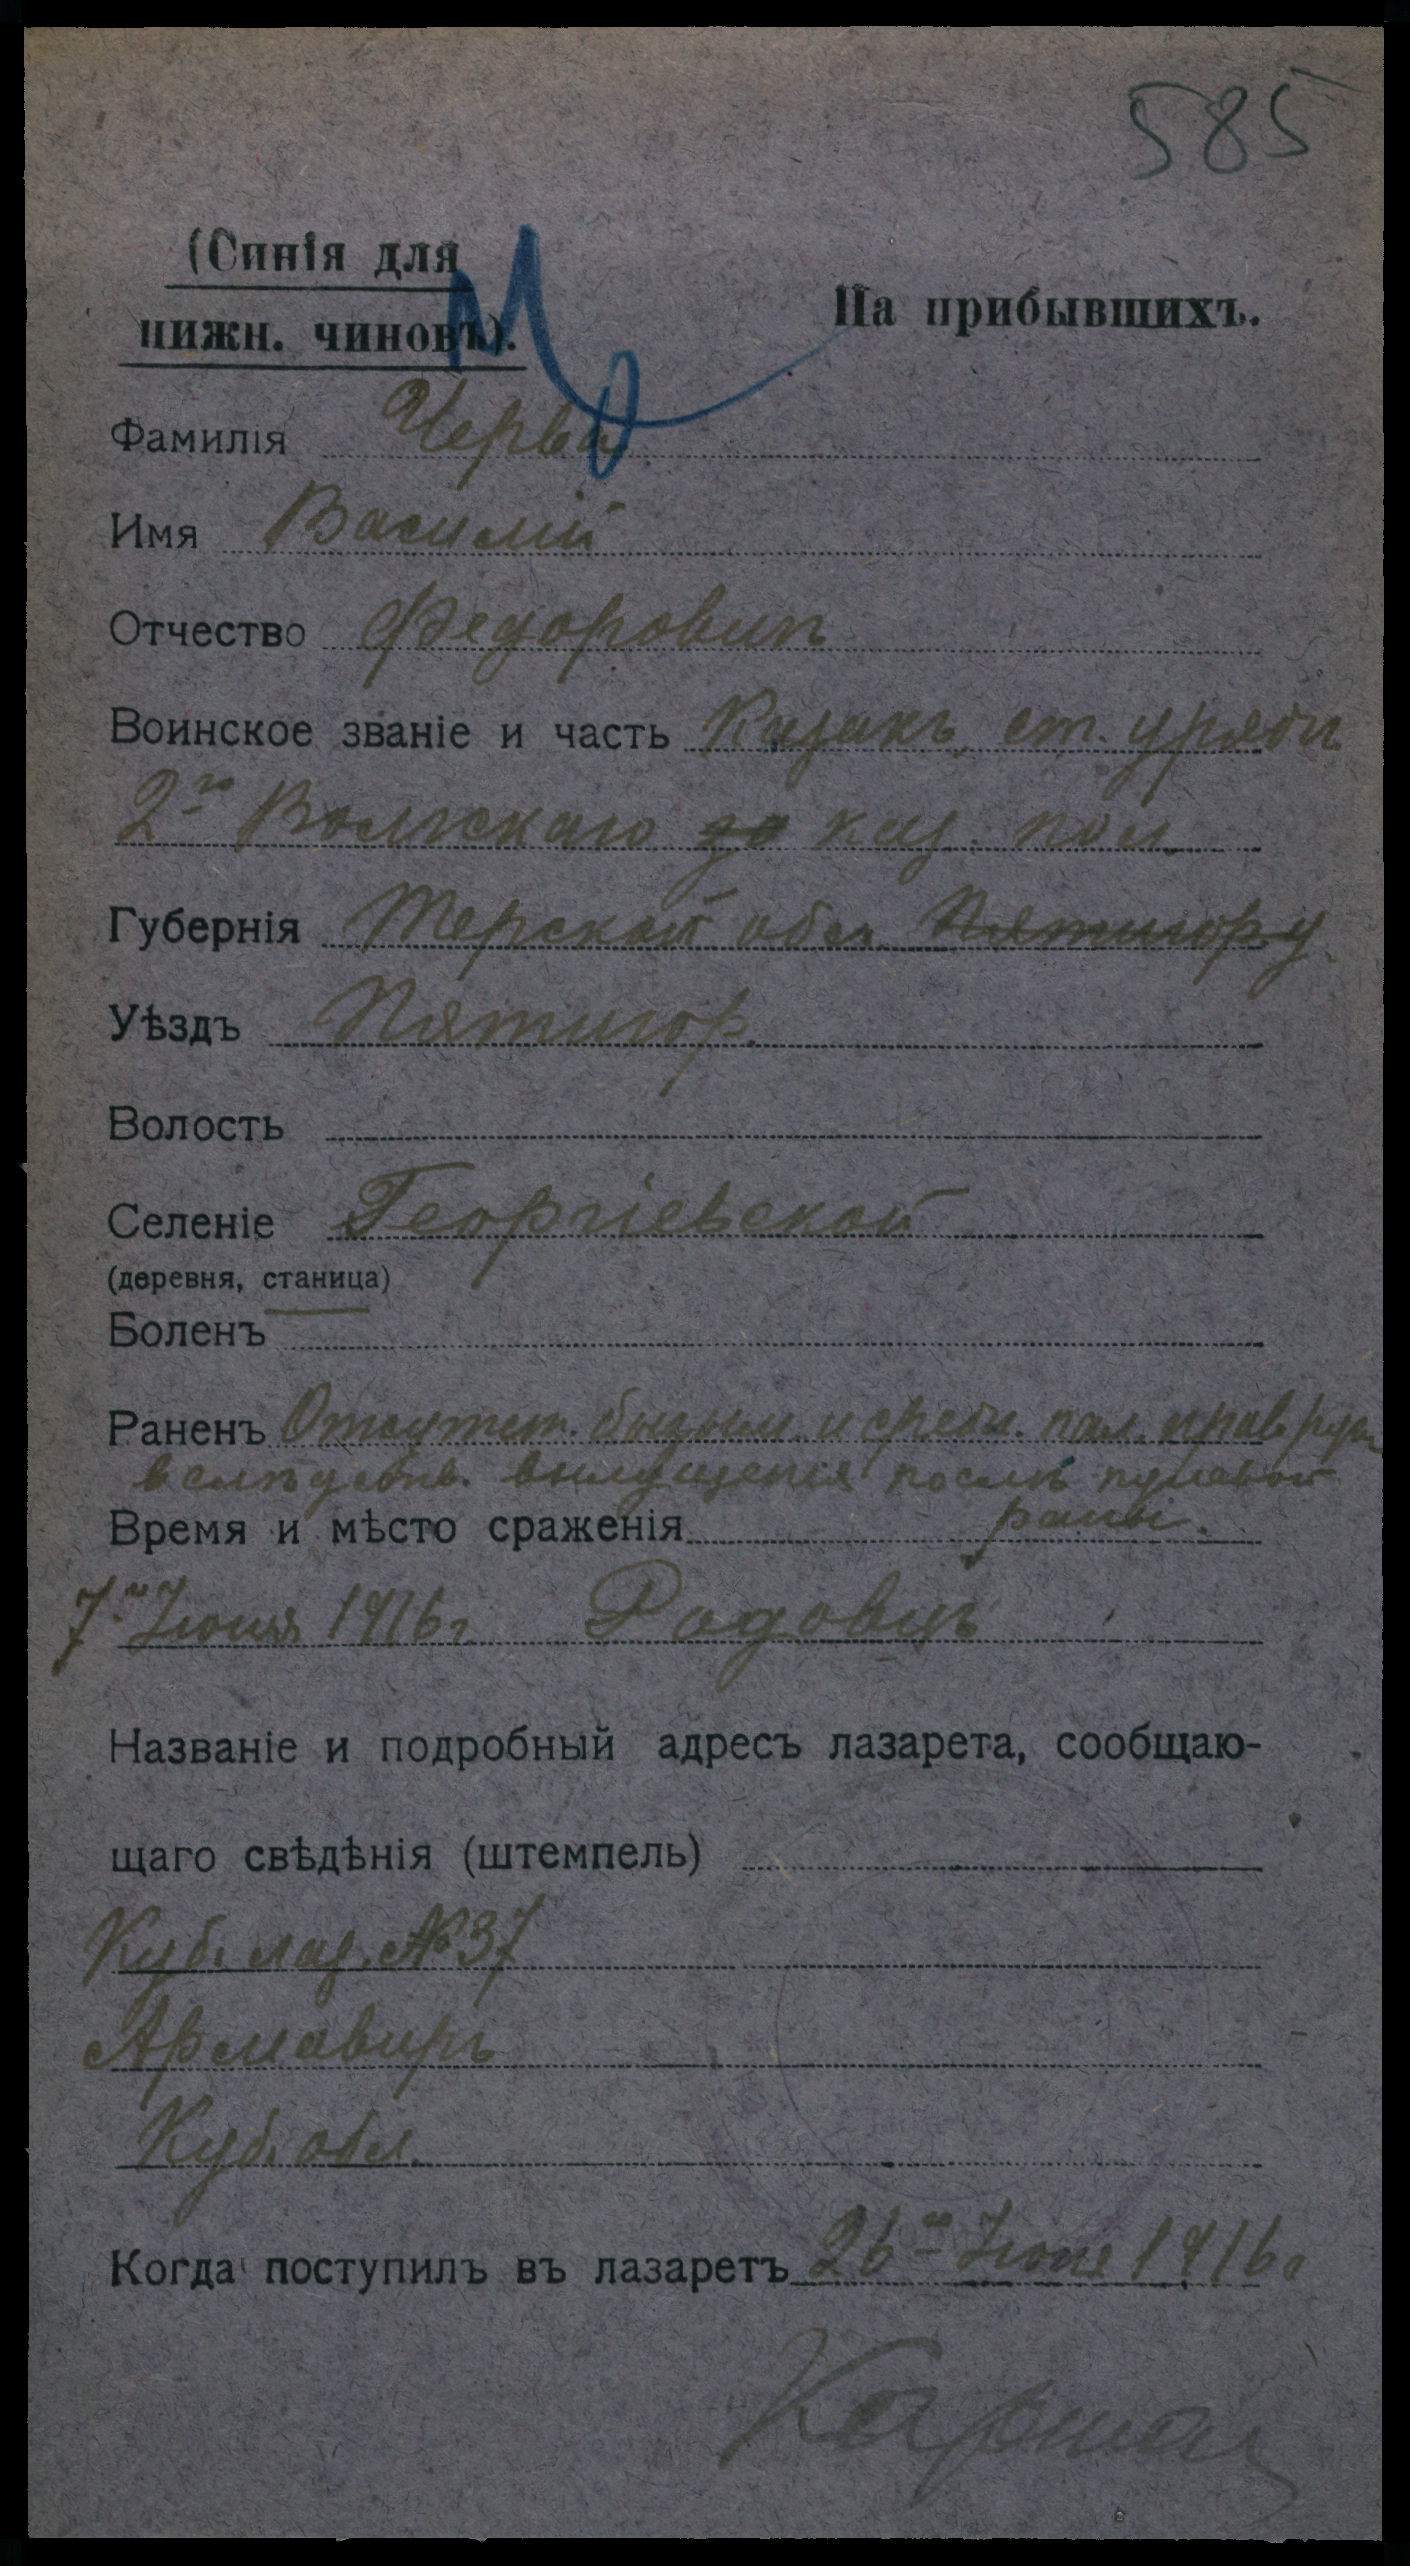 585
(Синія для
нижн. чиновъ).
На прибывшихъ.
Фамилія Черва
Имя Василій
Отчество Федоровичъ
Воинское званіе и часть Казакъ, ст. урядн.
2го Волжскаго каз. пол.
Губернія Терской обл. Пятигор. у
Уѣздъ Пятигор.
Волость
Селеніе Георгіевской
(деревня, станица)
Боленъ
Раненъ Отсутст. и средн. пал. прав. руки
вслѣдств. вылущенія послѣ пулевой
раны.
Время и мѣсто сраженія
7го Іюня 1916 г. Радовцъ
Названіе и подробный адресъ лазарета, сообщаю-
щаго свѣдѣнія (штемпель)
Куб. лаз. №37
Армавиръ
Куб. обл.
Когда поступилъ въ лазаретъ 26го Іюня 1916 г